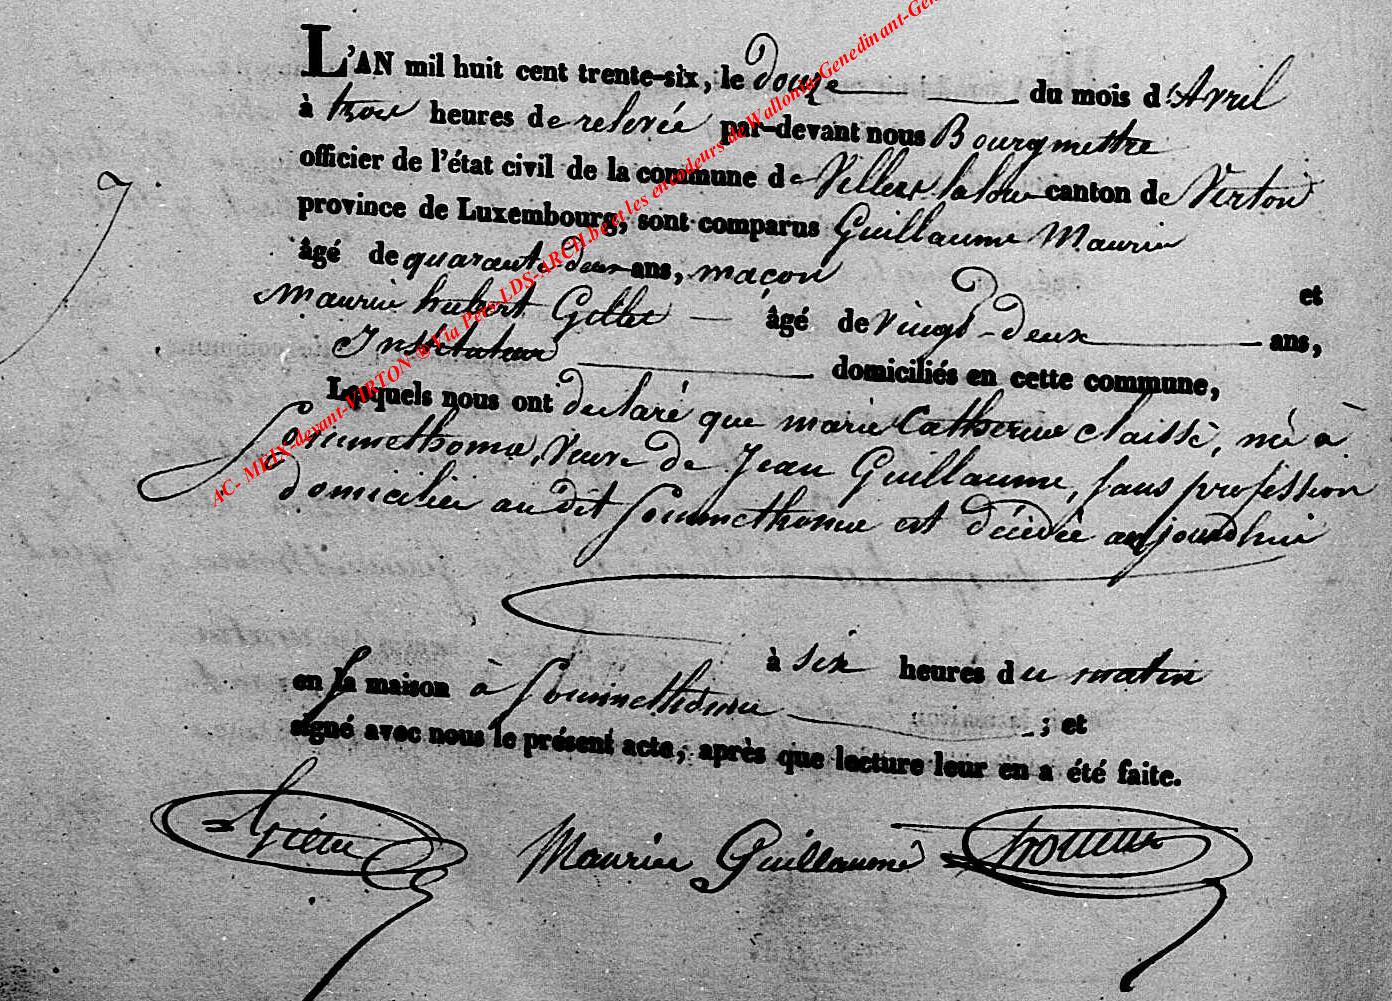 L'AN mil huit cent trente-six, le douze du mois d'Avril
à trois heures de relevée par-devant nous Bourgmettre
officier de l'état civil de la commune de Villers laloue canton de Virton
province de Luxembourg, sont comparus Guillaume Maurice
âgé de quarante-deux ans, maçon et
Maurice hubert Gillet âgé de vingt-deux ans,
Instituteur domiciliés en cette commune,
Lesquels nous ont declaré que marie Catherine claisse, née à
Sommethonne, veuve de Jean Guillaume, sans profession
domiciliée au dit Sommethonne est décédée aujourdhui
à six heures du matin
en sa maison à Sommethonne ; et
signé avec nous le présent acte, après que lecture leur en a été faite.
Maurice Guillaume
7
AC- MEIX-devant-VIRTON ® Via Pers LDS-ARCH.be et les encodeurs de Wallonia-Genedinant-Gen